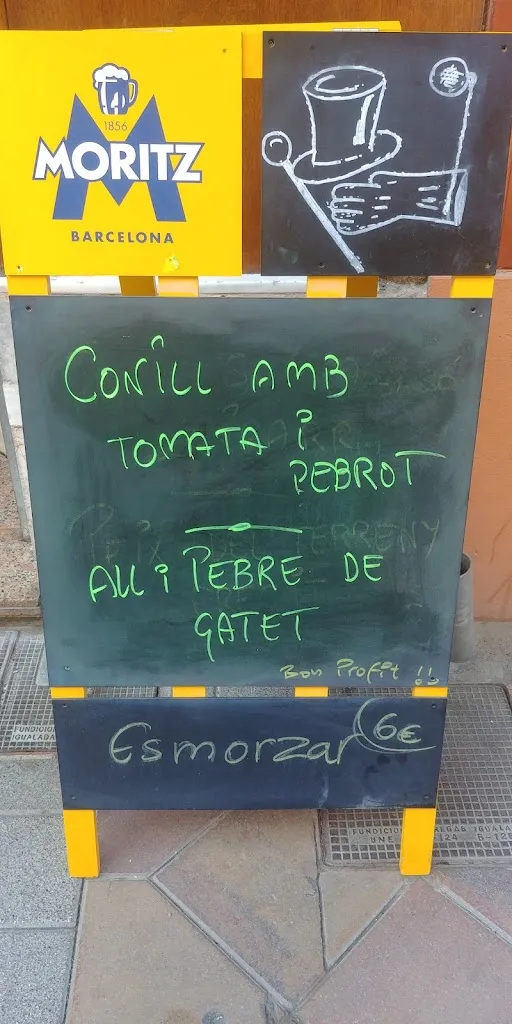 1856
MORITZ
BARCELONA
CONILL AMB
TOMATA I
PEBROT
ALL i PEBRE DE
GATET
Bon Profit !!
Esmorzar 6€
FUNDICIO
IGUALADA